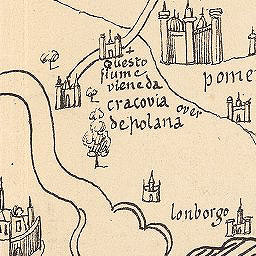 Questo
fiume
viene da
cracovia
depolana
over
pome
lonborgo